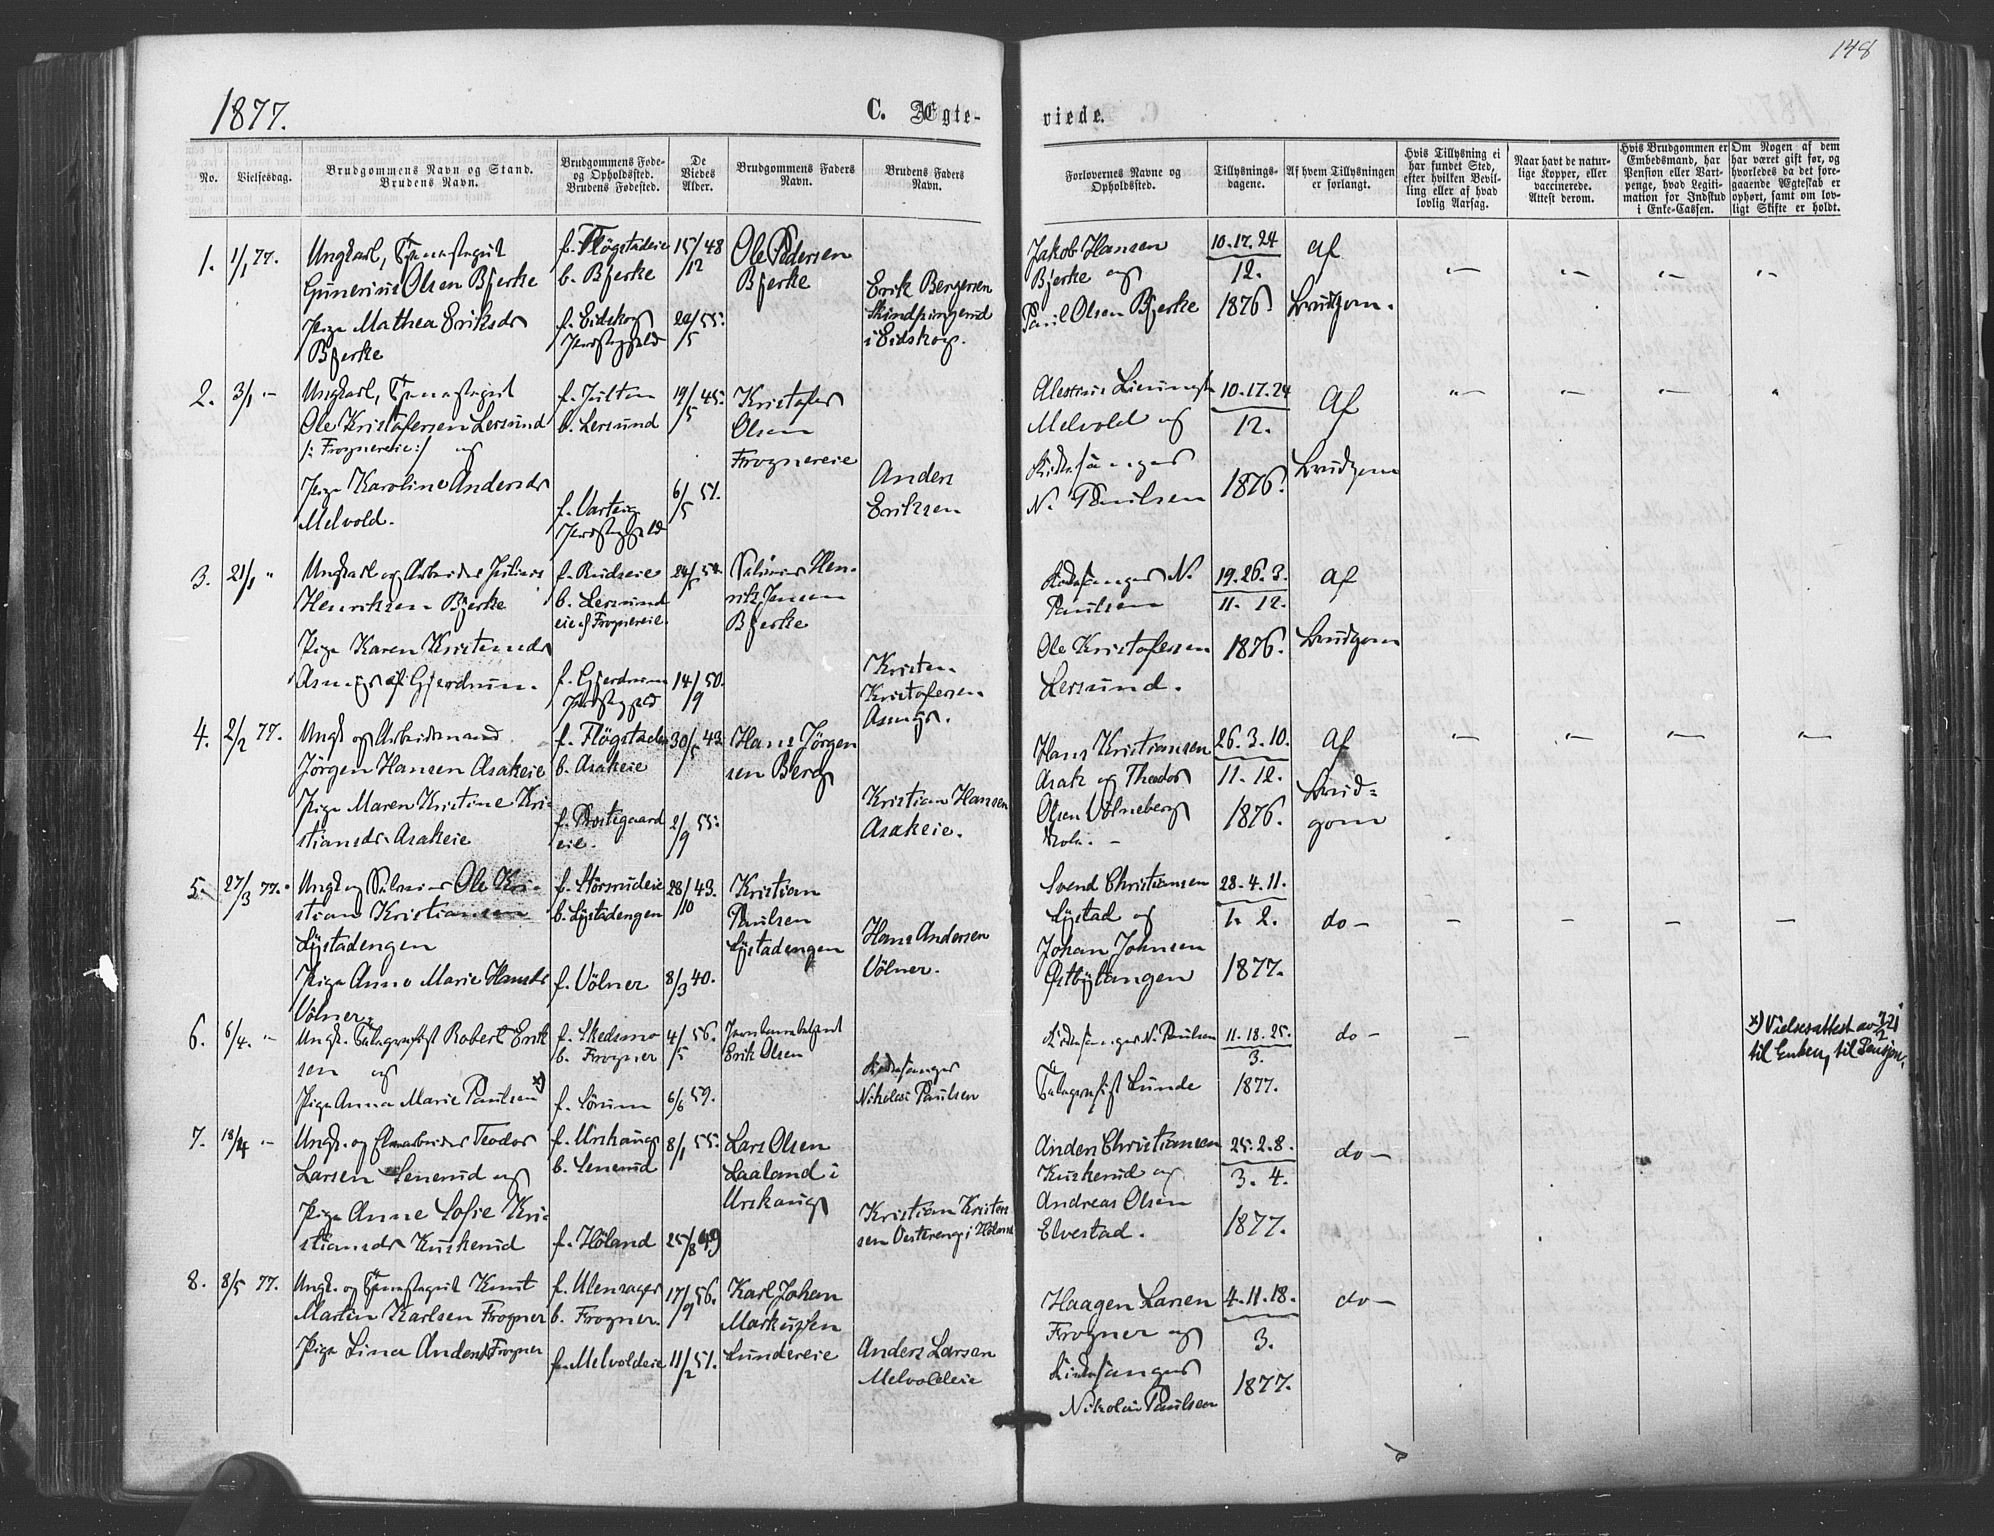 148
1877.
C. Ægte-
viede.
No.
Vielsesdag.
Brudgommens Navn og Stand.
Brudens Navn.
Brudgommens Føde-
og Opholdssted.
Brudens Fødested.
De
Viedes
Alder.
Brudgommens Faders
Navn.
Brudens Faders
Navn.
Forlovernes Navne og
Opholdssted.
Tillysnings-
dagene.
Af hvem Tillysningen
er forlangt.
Hvis Tillysning ei
har fundet Sted,
efter hvilken Bevil-
ling eller af hvad
lovlig Aarsag.
Naar havt de natur-
lige Kopper, eller
vaccinerede.
Attest derom.
Hvis Brudgommen er
Embedsmand, har
Pension eller Vart-
penge, hvad Legiti-
mation for Indskud
i Enke-Cassen.
Om Nogen af dem
har været gift før, og
hvorledes da det fore-
gaaende Ægteskab er
ophørt, samt om lov-
ligt Skifte er holdt.
1. 1/1 77.
Ungkarl,
Gunerius Olsen Bjerke
Pige Mathea Eriksdr
Bjerke
f. Fløgstadeie
b. Bjerke
f. Eidskog
Præstegjeld
15/12 48
22/5 55.
Ole Pedersen
Bjerke
Erik Bergersen
i Eidskog.
Jakob Hansen
Bjerke og
Paul Olsen Bjerke
10. 17. 24
12.
1876
Af
Brudgom.
2. 3/1 "
Ungkarl,
Ole Kristofersen Lersund
/: Frognereie :/ og
Pige Karoline Andersdr
Melvold.
f. Julton
b. Lersund
f. Varteig
Præstegjeld
19/5 45.
6/5 51.
Kristofer
Olsen
Frognereie
Anders
Eriksen
Melvold og
Kirkesanger
N. Paulsen
10. 17. 24
12.
1876.
Af
Brudgom
3. 21/1 "
Ungkarl og Arbeider Julius
Henriksen Bjerke
Pige Karen Kristensdr
Asmyr af Gjerdrum.
f. Rudseie
b. Lersund
eie Frognereie.
f. Gjerdrum
Præstegjeld
24/5
14/9 50.
Hen-
rik Jensen
Bjerke
Kristen
Kristofersen
Asmyr.
Kirkesanger N.
Paulsen
Ole Kristofersen
Lersund.
19. 26. 3.
11. 12.
1876.
Af
Brudgom
4. 2/2 77.
Ungk og Arbeidsmand
Jörgen Hansen Asakeie
Pige Maren Kristine Kri-
stiansdr Asakeie
f. Flögstadeie
b. Asakeie
f. Prestegaard
eie.
30/5 43
2/9 55.
Hans Jörgen
sen Berg
Kristian Hansen
Asakeie.
Hans Kristiansen
Asak og Theodor
Olsen Völneberg
26. 3. 10.
11. 12.
1876.
Af
Brud-
gom
5. 27/3 77.
Ungk og Ole Kri-
stian Kristiansen
Lystadengen
Pige Anne Marie Hansdr
Völner.
f. Störsrudeie
b. Lystadengen
f. Völner
28/10 43.
8/3 40.
Kristian
Paulsen
Lystadengen
Hans Andersen
Völner.
Svend Christiansen
Lystad og
Johan Johnsen
Østbytangen
28. 4. 11.
1. 2.
1877.
do -
6. 6/4. "
Ungk. Telegrafist Robert Erik
sen og
Pige Anna Marie Paulsen x)
f. Skedsmo
b. Frogner
f. Sörum
4/5 56.
6/6 59.
Erik Olsen
Kirkesanger
Nikolai Paulsen
Kirkesanger N. Paulsen
Telegrafist Lunde
11. 18. 25.
3.
1877.
do -
x) Vielsesattest av
til Enken, til Pensjon.
7. 18/4 "
Ungk. og Teodor
Larsen Senerud og
Pige Anne Sofie Kri-
stiansdr Kuskerud
f. Urskaug
b. Senerud
f. Höland
8/1 55.
25/8 49
Lars Olsen
Laaland i
Urskaug
Kristian Kristen
sen i Höland
Anders Christiansen
Kuskerud og
Andreas Olsen
Elvestad.
25. 2. 8.
3. 4.
1877.
do -
8. 8/5 77.
Ungk. og Knut
Martin Karlsen Frogner
Pige Lina Andersd Frogner
f. Ulensager
b. Frogner.
f. Melvoldeie
17/9 56.
11/2 51.
Karl Johan
Markussen
Lundereie
Anders Larsen
Melvoldeie
Haagen Larsen
Frogner og
Kirkesanger
Nikolai Paulsen
4. 11. 18.
3.
1877.
do -